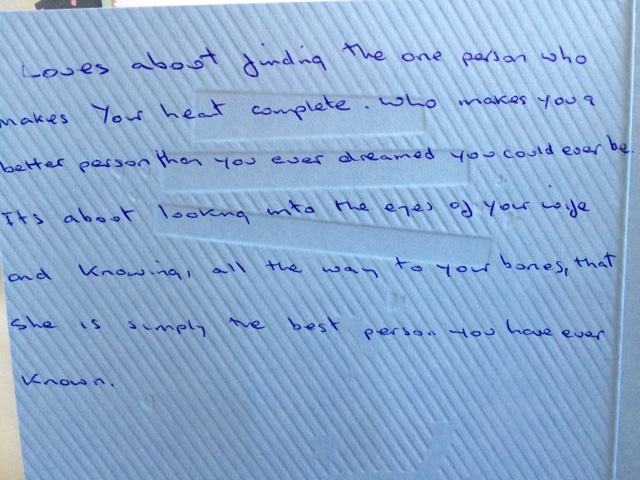 Loves about finding the one person who
makes your heart complete. who makes you a
better person than you ever dreamed you could ever be.
Its about looking into the eyes of your wife
and knowing, all the way to your bones, that
she is simply the best person you have ever
known.